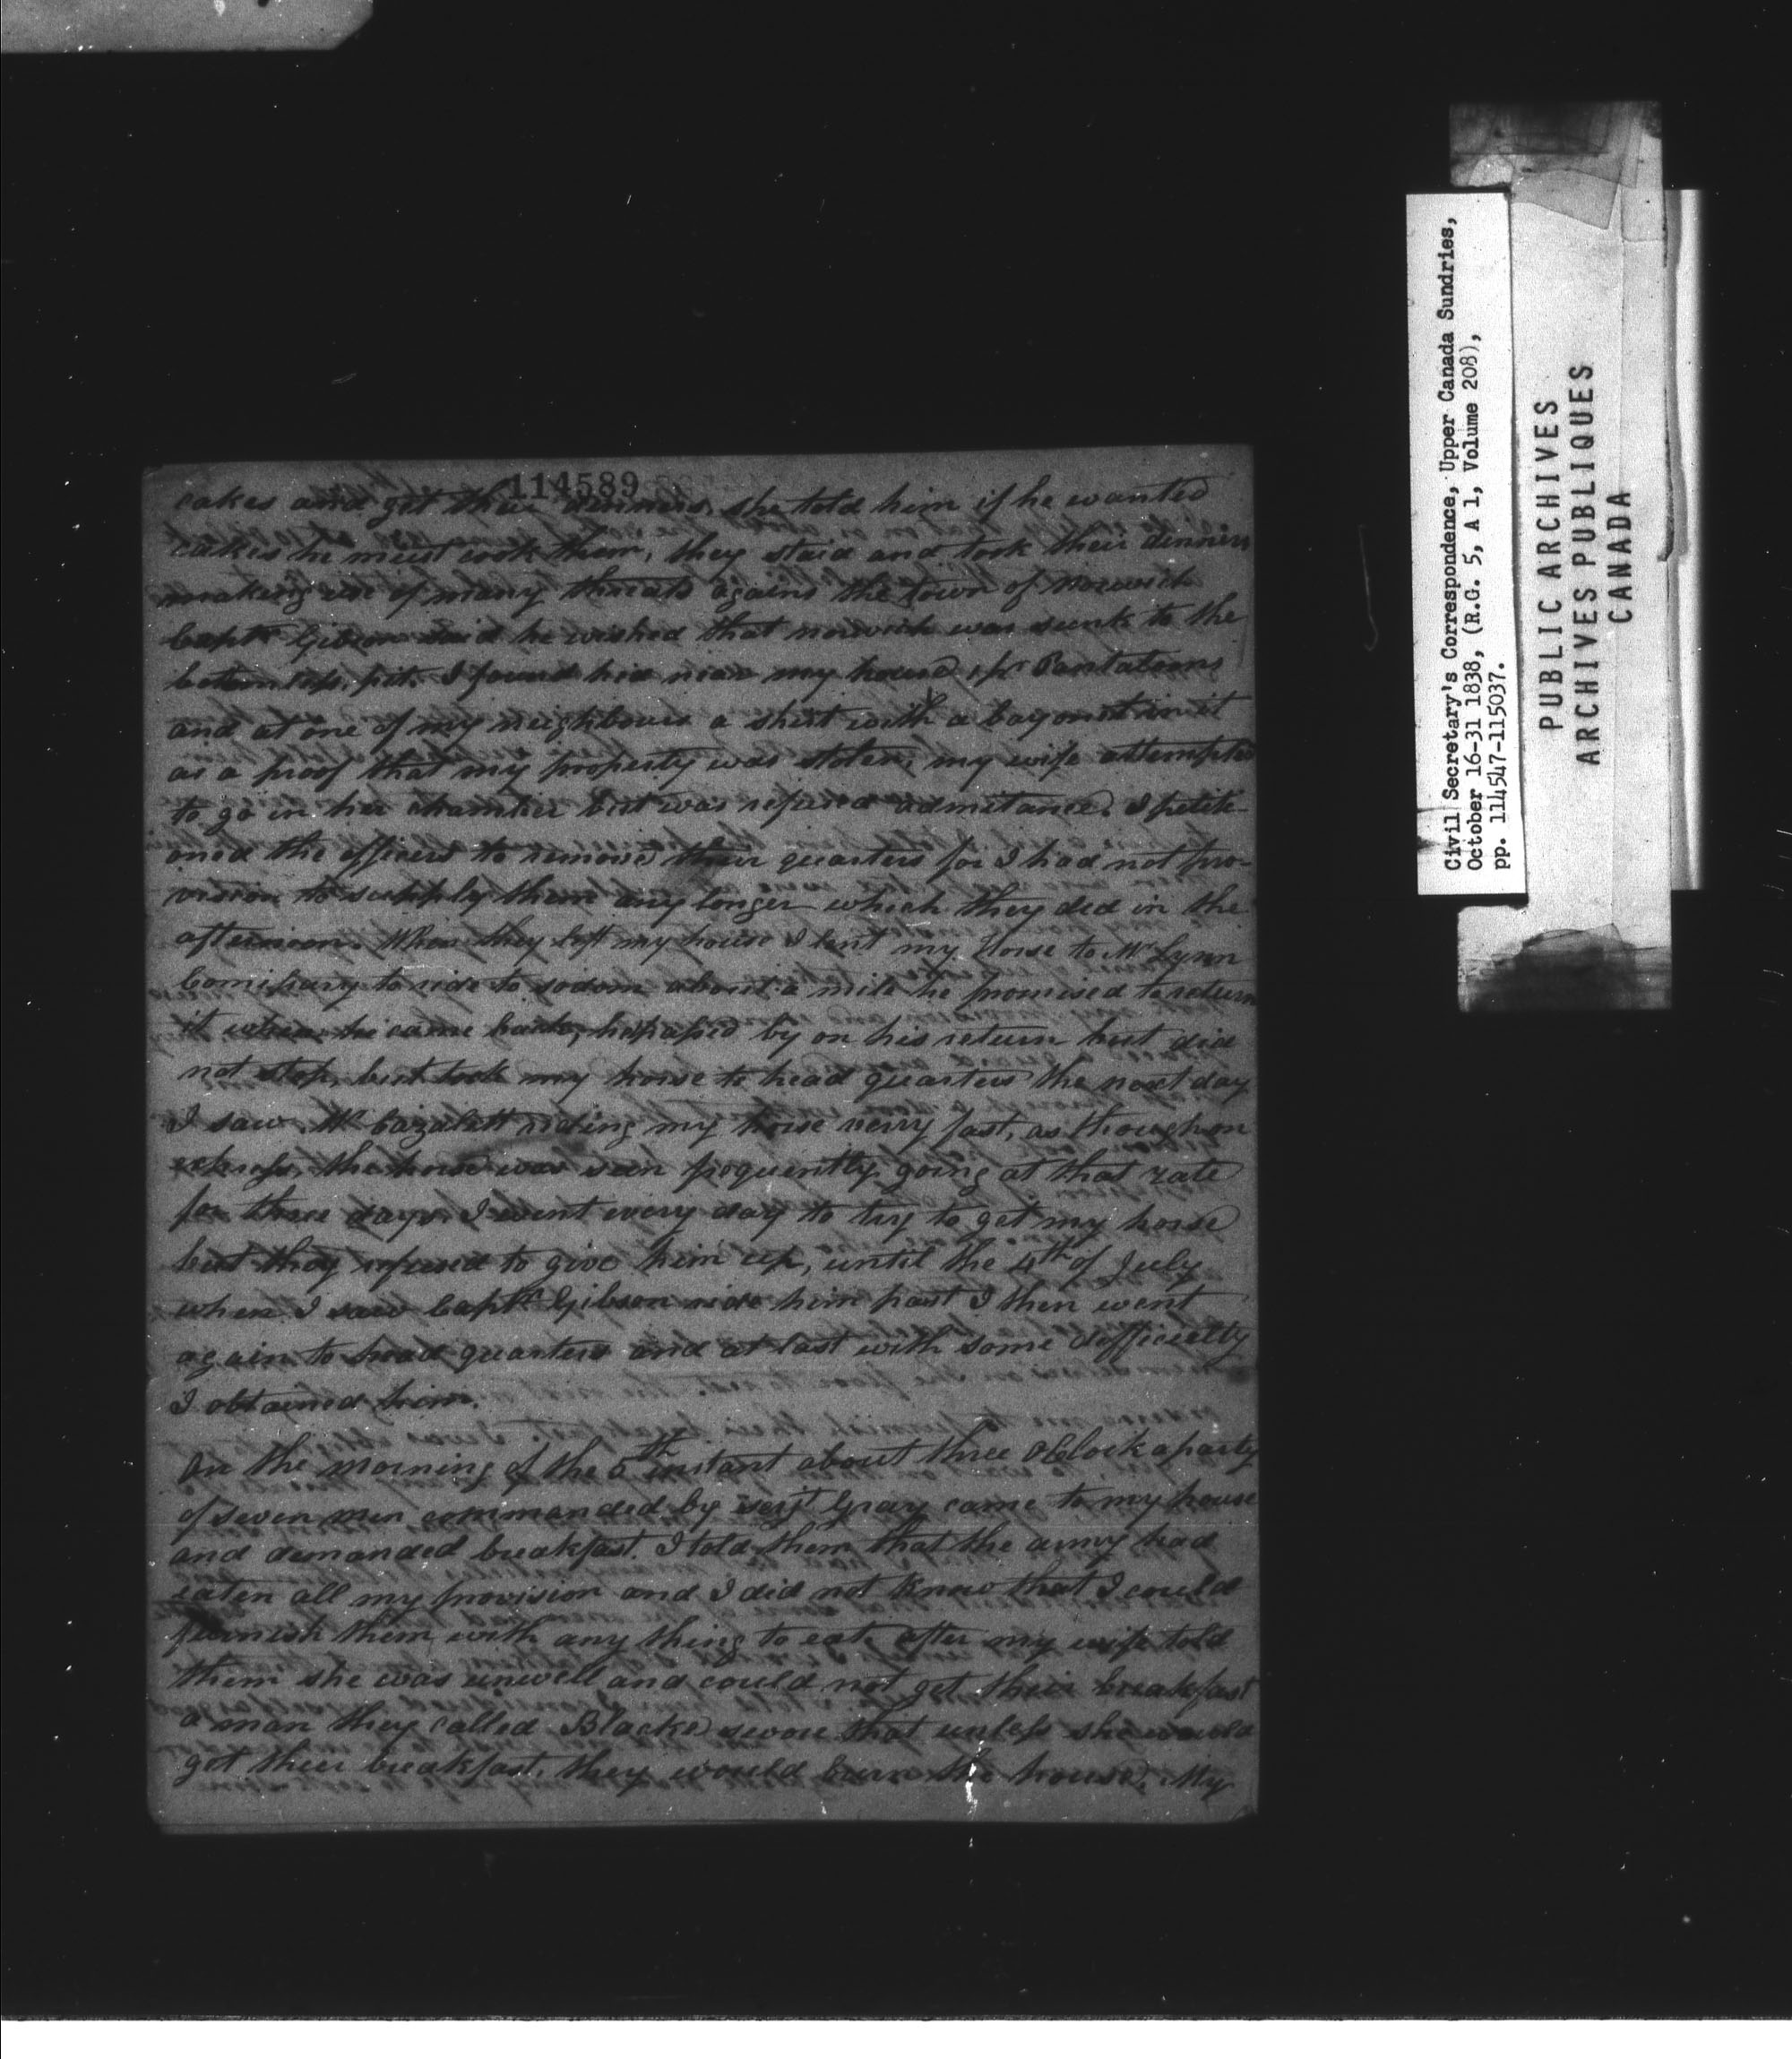 114589
cakes and get their dinners, she told him if he wanted
cakes he must cook them, they staid and took their dinners
making use of many threats agains the town of Norwich
Captn Gibson said he wished that norwich was sunk to the
bottomless pit. I found hid near my house 1 pr Pantaloons
and at one of my neighbours a shirt with a bayonet in it
as a proof that my property was stolen, my wife attempted
to go in her chamber but was refused admitance. I petiti-
oned the officers to remove their quarters for I had not pro-
vision to supply them any longer which they did in the
afternoon. When they left my house I lent my horse to Mr Lynn
Comissary to ride to sodom about a mile he promised to return
it when he came back, he passed by on his return but did
not stop, but took my horse to head quarters the next day
I saw Mr Cazalett riding my horse verry fast, as though on
express, the horse was seen frequently going at that rate
for three days. I went every day to try to get my horse
but they refused to give him up, until the 4th of July
when I saw Captn Gibson ride him past I then went
again to head quarters and at last with some difficielty
I obtained him.
On the morning of the 5th instant about three OClock a party
of seven men commanded by serjt Gray came to my house
and demanded breakfast. I told them that the army had
eaten all my provision and I did not know that I could
furnish them with any thing to eat, after my wife told
them she was unwell and could not get their breakfast
a man they called Blacke swore that unless she would
get their breakfast, they would burn the house, My
Civil Secretary's Correspondence, Upper Canada Sundries,
October 16-31 1838, (R.G. 5, A 1, Volume 208),
pp. 114547-115037.
PUBLIC ARCHIVES
ARCHIVES PUBLIQUES
CANADA